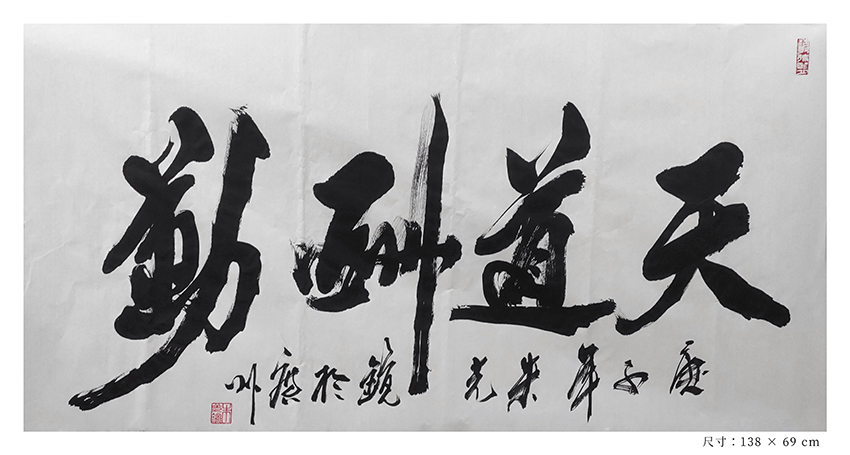 天道酬勤
庚子年朱光鏡於廣州
尺寸：138 × 69 cm